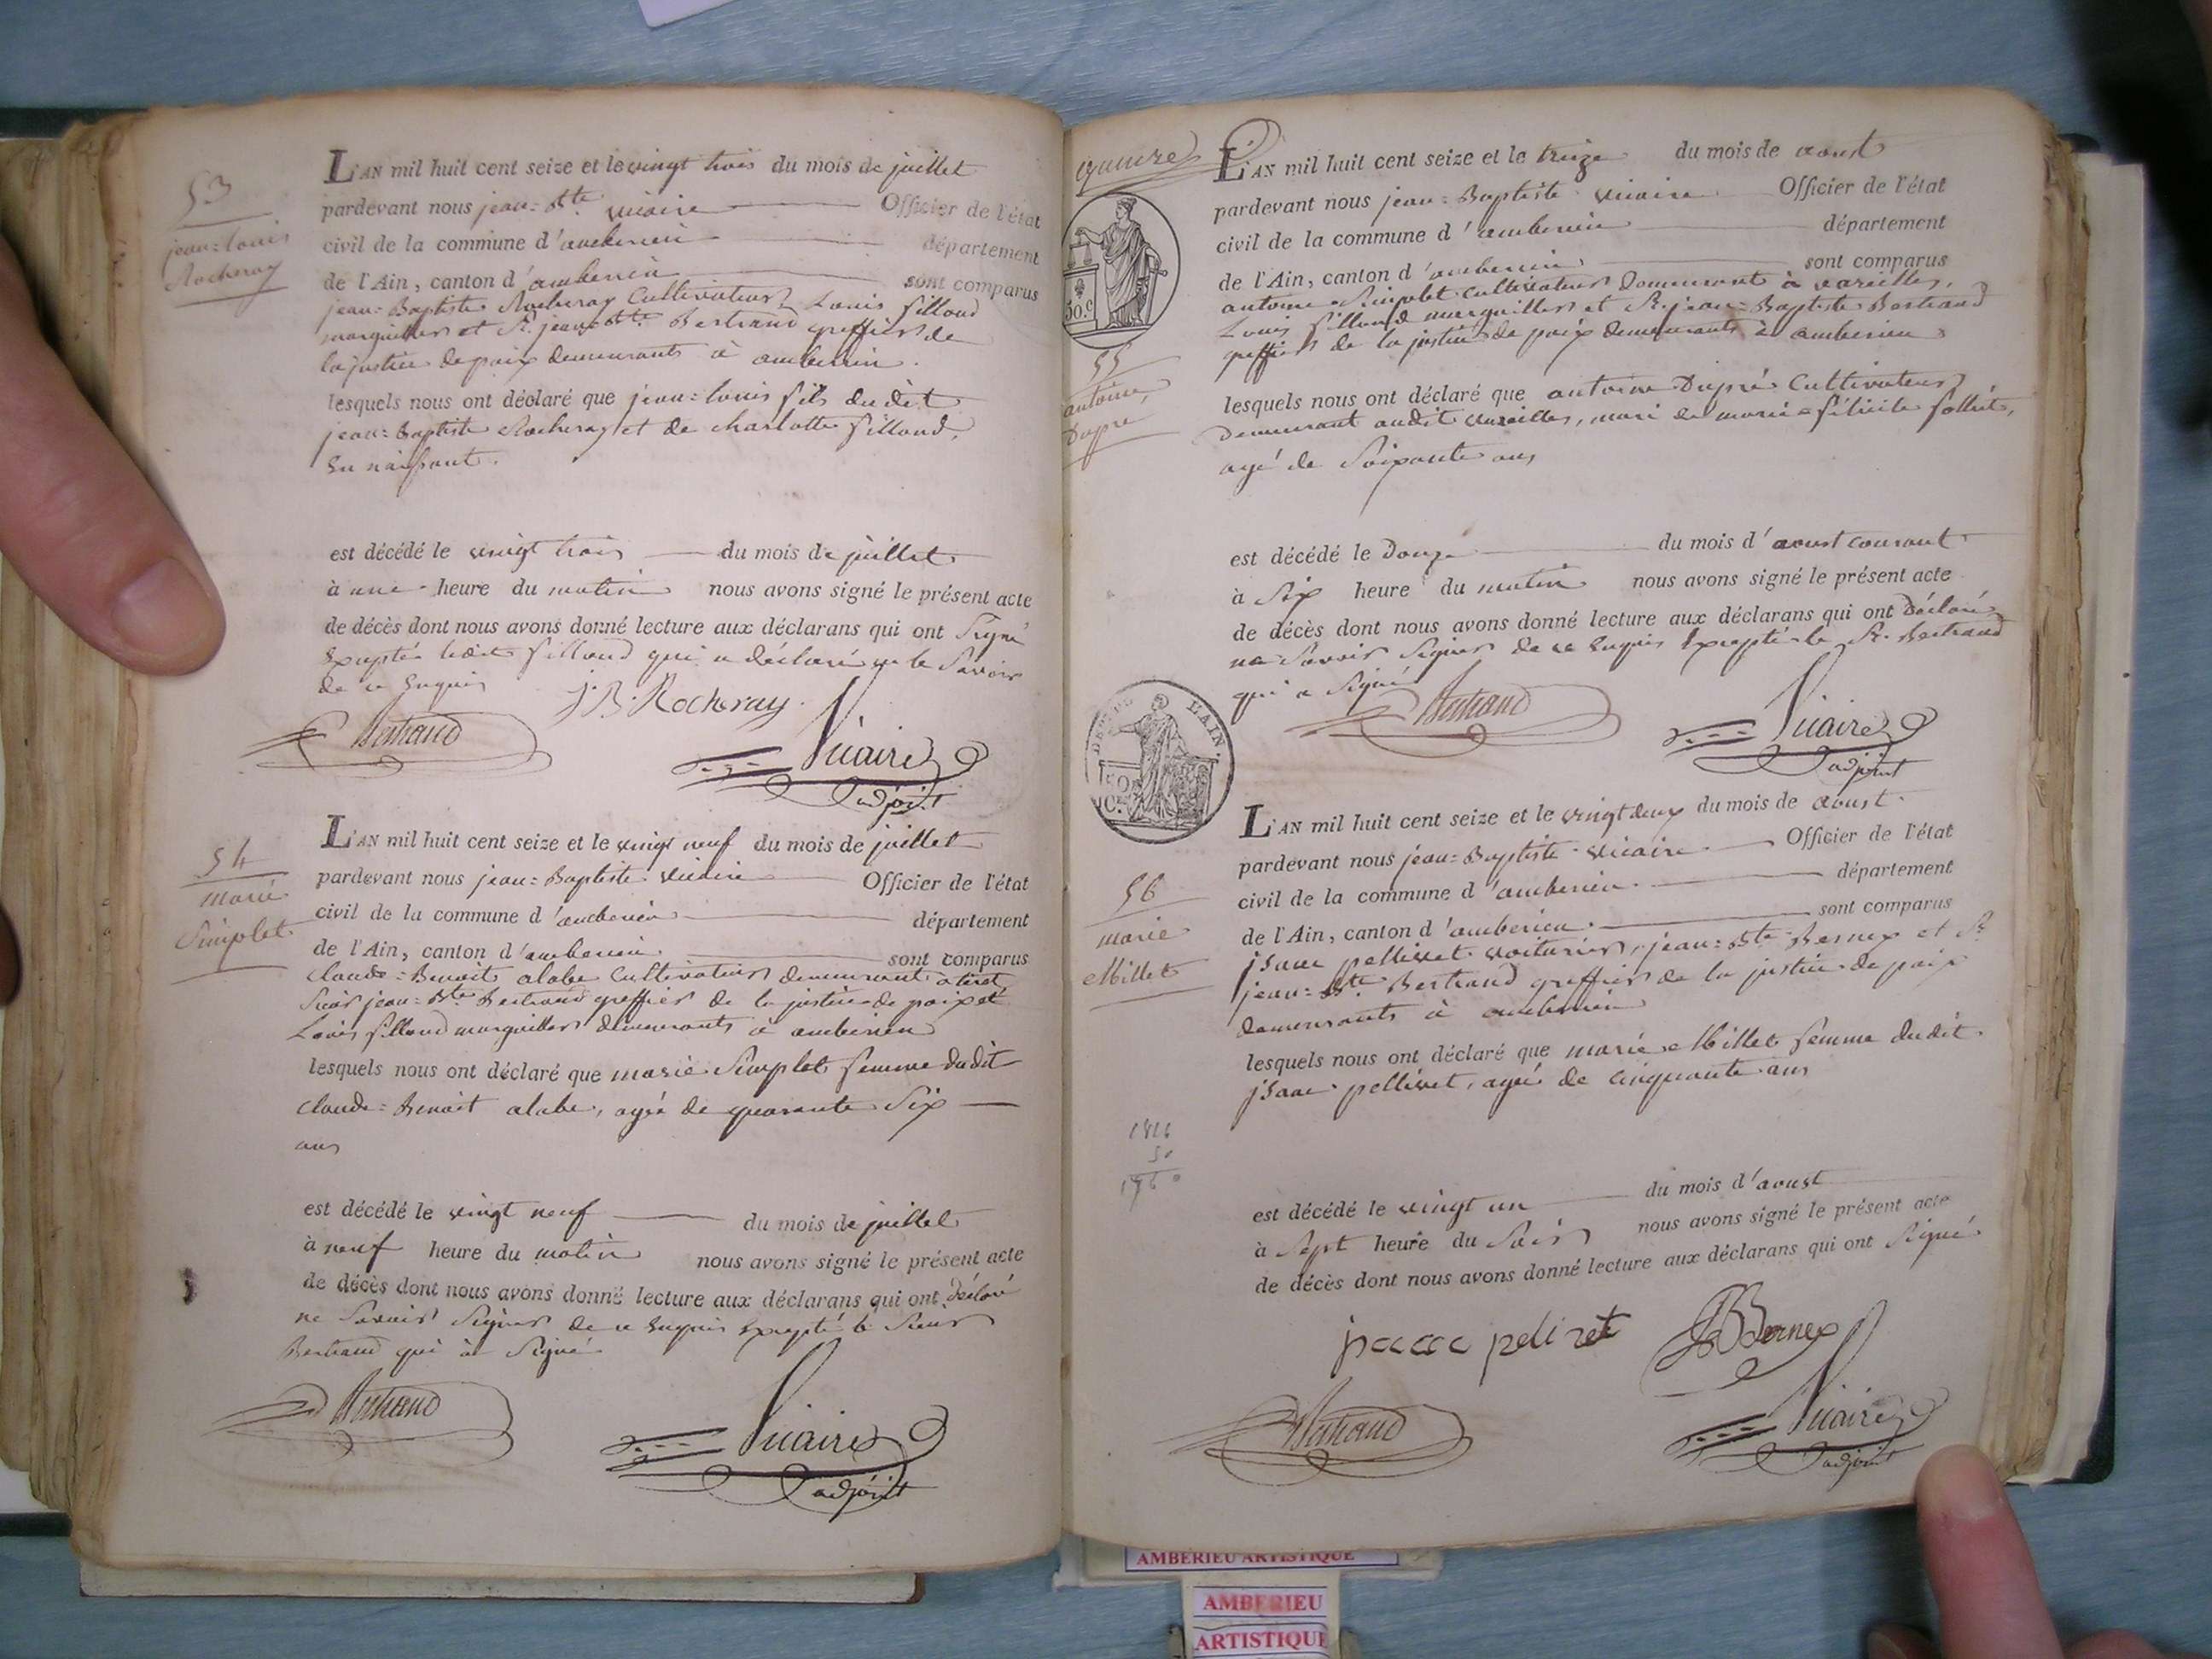 53
jean=louis
Rocheray
L'AN mil huit cent seize et le vingt trois du mois de juillet
pardevant nous jean=Bte. vicaire Officier de l'état
civil de la commune d'amberieu département
de l'Ain, canton d'amberieu sont comparus
jean=Baptiste Rocheray Cultivateur, Louis fillond
marguiller et Sr. jean=Bte. Bertrand greffier de
la justice de paix demeurants à amberieu.
lesquels nous ont déclaré que jean=louis fils dudit
jean=Baptiste Rocheray et de charlotte fillond,
En naissant.
est décédé le vingt trois du mois de juillet
à une heure du matin nous avons signé le présent acte
de décès dont nous avons donné lecture aux déclarans qui ont Signé
Excepté ledit fillond qui a déclaré ne le Savoir
de ce Enquis
J. B. Rocheray.
Bertrand
Vicaire
adjoint
54
marie
Simplet
L'AN mil huit cent seize et le vingt neuf du mois de juillet
pardevant nous jean=Baptiste vicaire Officier de l'état
civil de la commune d'amberieu département
de l'Ain, canton d'amberieu sont comparus
claude=Benoit alabe Cultivateur demeurant a tiret
Sieur jean=Bte Bertrand greffier de la justice de paix et
Louis fillond marguiller demeurants à amberieu
lesquels nous ont déclaré que marie Simplet femme dudit
claude=Benoit alabe, agée de quarante Six
ans
est décédé le vingt neuf du mois de juillet
à neuf heure du matin nous avons signé le présent acte
de décès dont nous avons donné lecture aux déclarans qui ont déclaré
ne Savoir Signer de ce Enquis Excepté le Sieur
Bertrand qui a Signé
Bertrand
Vicaire
adjoint
50.c
55
antoine
Dupre
L'AN mil huit cent seize et le treize du mois de aoust
pardevant nous jean=Baptiste vicaire Officier de l'état
civil de la commune d'amberieu département
de l'Ain, canton d'amberieu sont comparus
antoine Simplet cultivateur Demeurant à vareilles,
Louis fillond marguiller et Sr. jean=Baptiste Bertrand
greffier de la justice de paix demeurants à amberieu
lesquels nous ont déclaré que antoine Dupré Cultivateur
Demeurant audit vareilles, mari de marie=félicité follict,
agé de Soixante ans
est décédé le Douze du mois d'aoust courant
à Six heure du matin nous avons signé le présent acte
de décès dont nous avons donné lecture aux déclarans qui ont Déclaré
ne Savoir Signer de ce Enquis Excepté le Sr. Bertrand
qui a Signé
Bertrand
Vicaire
adjoint
L'AIN.
56
marie
Millet
L'AN mil huit cent seize et le vingt deux du mois de aoust
pardevant nous jean=Baptiste vicaire Officier de l'état
civil de la commune d'amberieu département
de l'Ain, canton d'amberieu. sont comparus
jsaac pellivet voiturier, jean=Bte Bernex et Sr
jean=Bte. Bertrand greffier de la justice de paix
demeurants à amberieu
lesquels nous ont déclaré que marie Millet femme dudit
jsaac pellivet, agée de cinquante ans
1816
50
1760
est décédé le vingt un du mois d'aoust
à Sept heure du Soir nous avons signé le présent acte
de décès dont nous avons donné lecture aux déclarans qui ont Signé
pelivet
JB Bernex
Bertrand
Vicaire
adjoint
AMBERIEU ARTISTIQUE
AMBERIEU
ARTISTIQUE